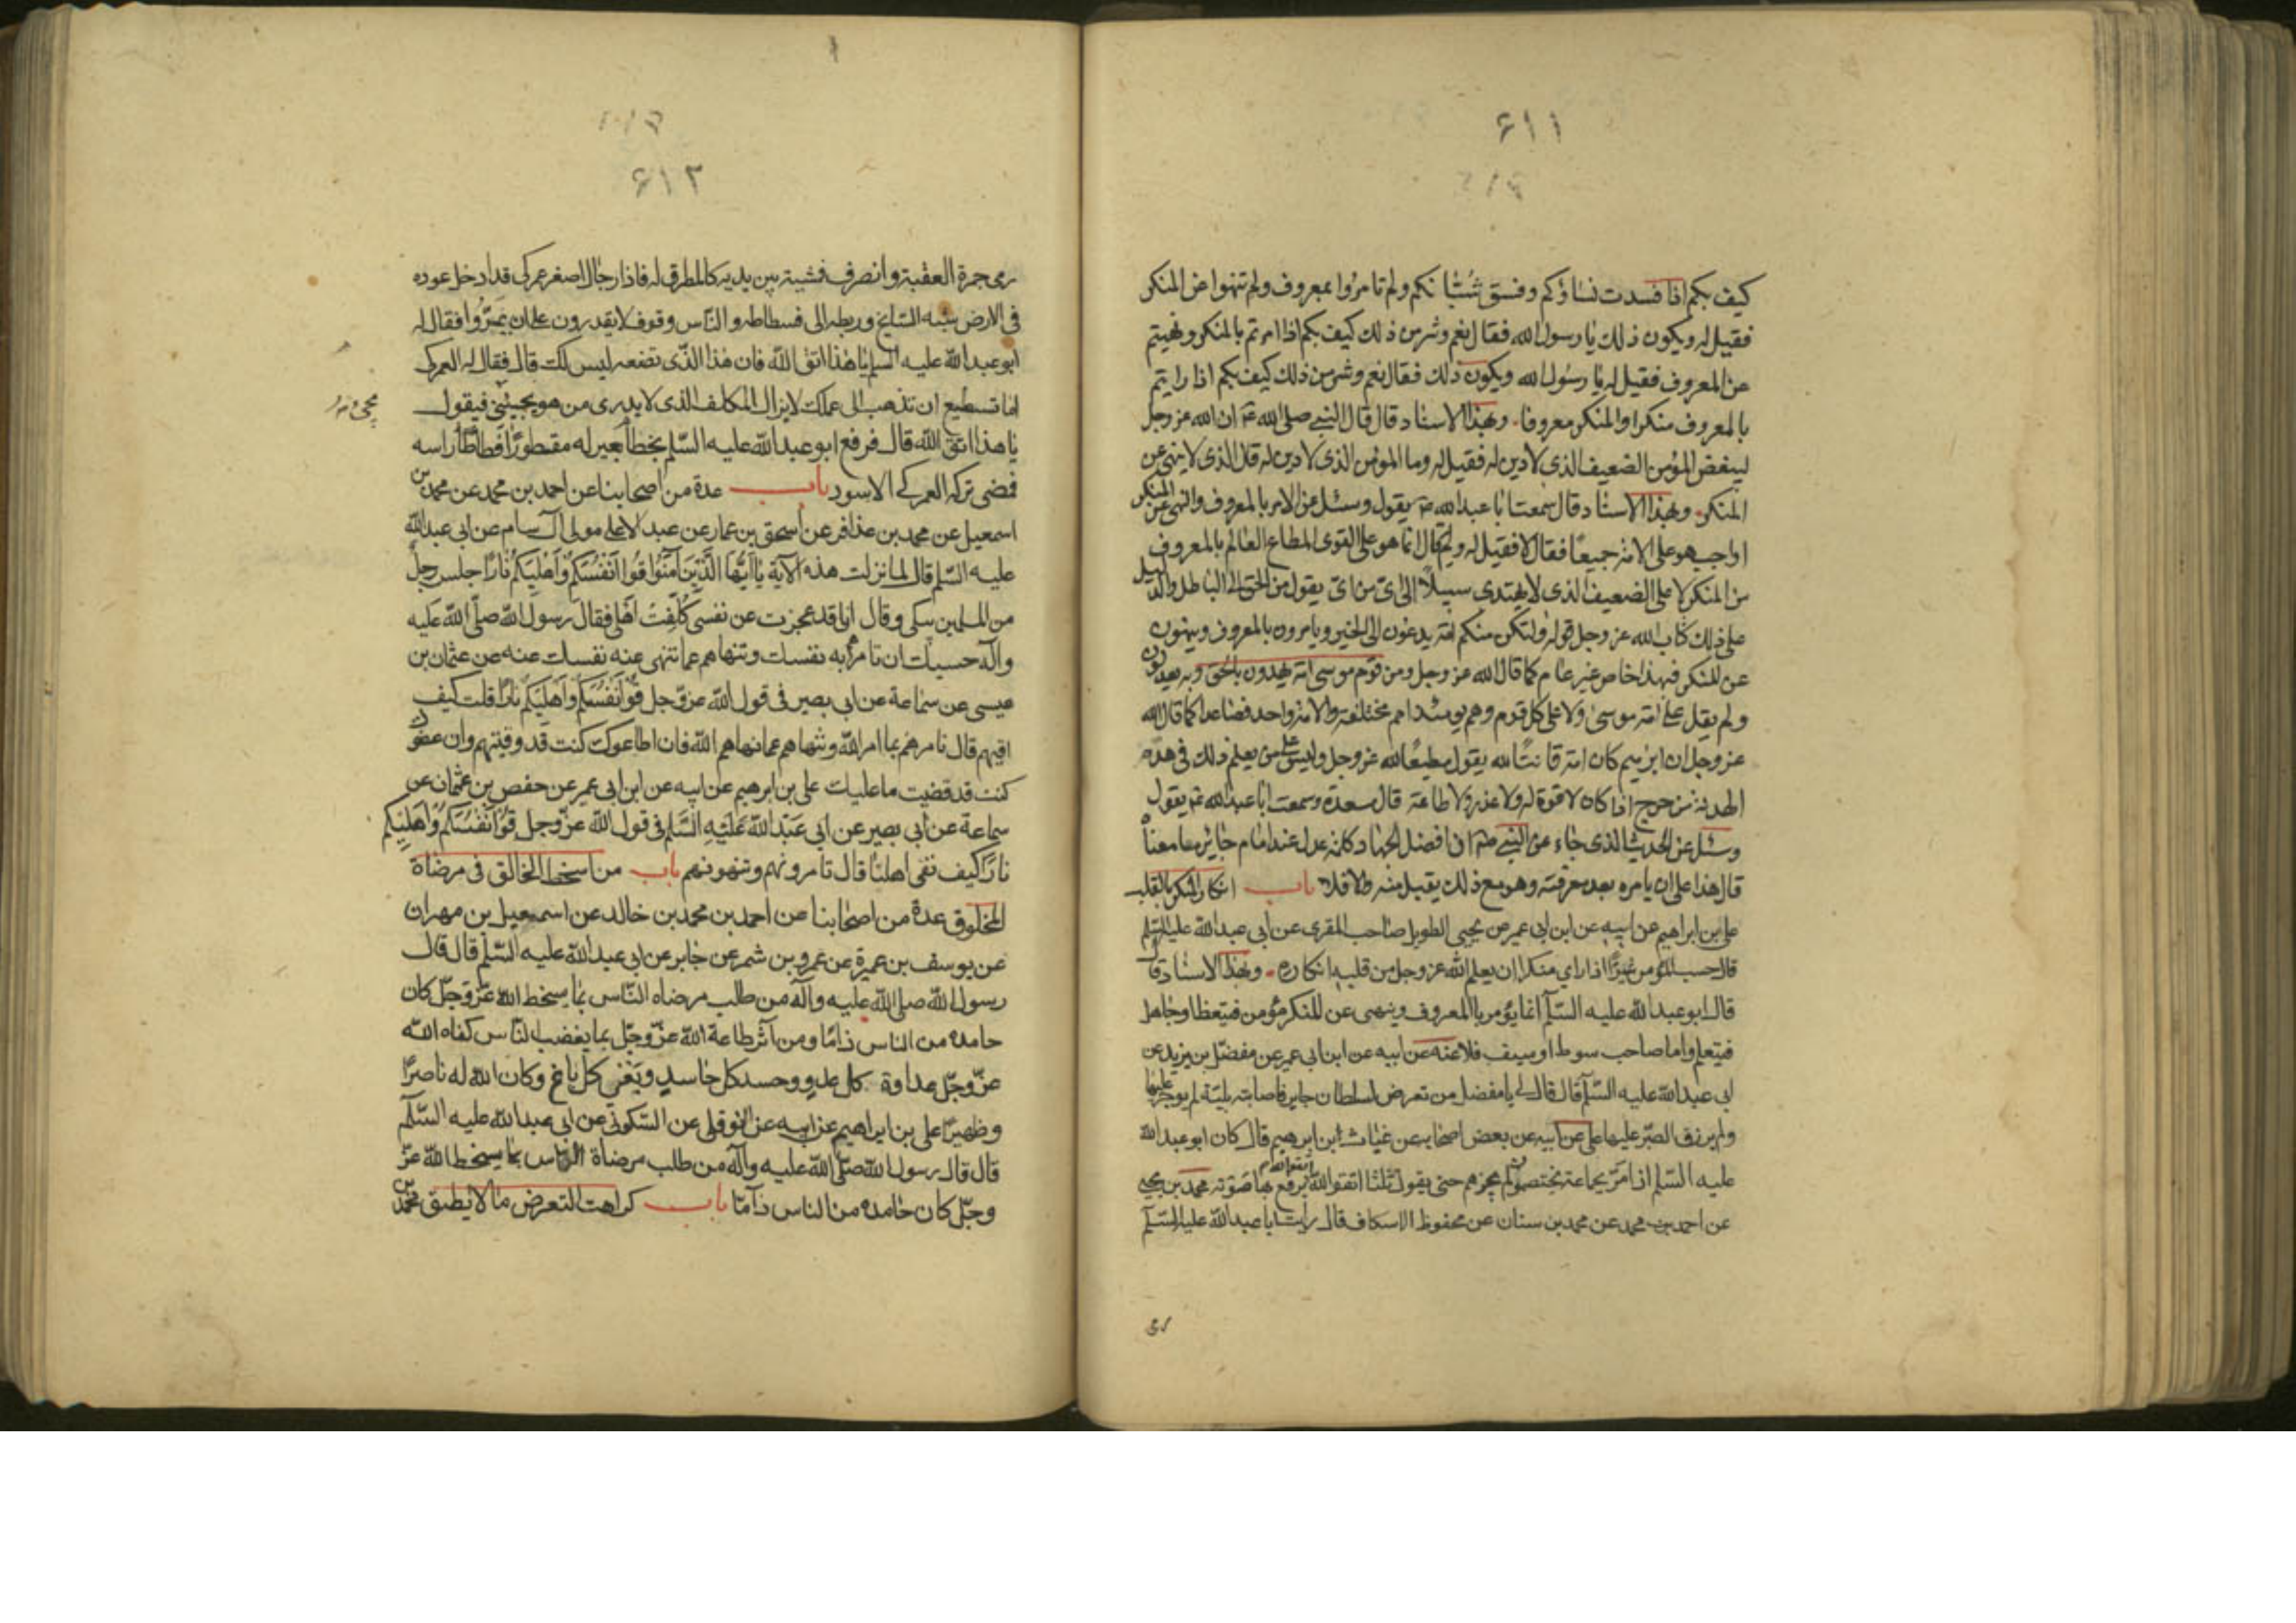 ۶۱۱
كيف بكم اذا فسدت نساؤكم وفسق شبانكم ولم تامروا بمعروف ولم تنهوا عن المنكر
فقيل له ويكون ذلك يا رسول الله فقال نعم وشر من ذلك كيف بكم اذا امرتم بالمنكر ونهيتم
عن المعروف فقيل له يا رسول الله ويكون ذلك فقال نعم وشر من ذلك كيف بكم اذا رايتم
بالمعروف منكرا والمنكر معروفا وبهذا الاسناد قال قال النبي صلى الله ان الله عز وجل
ليبغض المؤمن الضعيف الذي لا دين له فقيل له وما المؤمن الذي لا دين له قال الذي لا ينهى عن
المنكر وبهذا الاسناد قال سمعت ابا عبد الله يقول وسئل عن الامر بالمعروف والنهى عن المنكر
اواجب هو على الامة جميعا فقال لا فقيل له ولم قال انما هو على القوى المطاع العالم بالمعروف
من المنكر لا على الضعيف الذي لا يهتدي سبيلا الى اى من اى يقول من الحق الى الباطل والدليل
على ذلك كتاب الله عز وجل قوله ولتكن منكم امة يدعون الى الخير ويامرون بالمعروف وينهون
عن المنكر فهذا خاص غير عام كما قال الله عز وجل ومن قوم موسى امة يهدون بالحق وبه يعدلون
ولم يقل على امة موسى ولا على كل قوم وهم يومئذ امم مختلفة والامة واحد فصاعدا كما قال الله
عز وجل ان ابرهيم كان امة قانتا لله يقول مطيعا لله عز وجل وليس على من يعلم ذلك في هذه
الهدنة من حرج اذا كان لا قوة له ولا عذر ولا طاعة قال مسعدة وسمعت ابا عبد الله يقول
وسئل عن الحديث الذي جاء عن النبي ان افضل الجهاد كلمة عدل عند امام جاير ما معناه
قال هذا على ان يامره بعد معرفته وهو مع ذلك يقبل منه والا فلا باب انكار المنكر بالقلب
على بن ابراهيم عن ابيه عن ابن ابى عمير عن يحيى الطويل صاحب المقرى عن ابى عبد الله عليه السلم
قال حسب المؤمن اذا راى منكرا ان يعلم الله عز وجل من قلبه انكاره وبهذا الاسناد قال
قال ابو عبد الله عليه السلم انما يؤمر بالمعروف وينهى عن المنكر مؤمن فيتعظ او جاهل
فيتعلم واما صاحب سوط او سيف فلا عنه عن ابيه عن ابن ابى عمير عن مفضل بن يزيد عن
ابى عبد الله عليه السلم قال قال لى يا مفضل من تعرض لسلطان جاير فاصابته بلية لم يوجر عليها
ولم يرزق الصبر عليها على عن ابيه عن بعض اصحابه عن غياث ابن ابرهيم قال كان ابو عبد الله
عليه السلم اذا مر بجماعة يختصمون لم يجزهم حتى يقول ثلثا اتقوا الله يرفع بها صوته محمد بن يحيى
عن احمد بن محمد عن محمد بن سنان عن محفوظ الاسكاف قال رايت ابا عبد الله عليه السلم
رمى
۶۱۲
رمى جمرة العقبة وانصرف فمشيت بين يديه كالمطرق له فاذا رجال اصفر عمركى قد ادخل عوده
فى الارض شبه السايخ وربطه الى فسطاطه والناس وقوف لا يقدرون على ان يمروا فقال له
ابو عبد الله عليه السلم يا هذا اتق الله فان هذا الذى تصنعه ليس لك قال فقال له العمركى
اما تستطيع ان تذهب الى عملك لا يزال المكلف الذى لا يدرى من هو يجيئنى فيقول
يا هذا اتق الله قال فرفع ابو عبد الله عليه السلم بخطام بعير له مقطورا فطاطا راسه
فمضى تركه العمركى الاسود باب عدة من اصحابنا عن احمد بن محمد عن محمد بن
اسمعيل عن محمد بن عذافر عن اسحق بن عمار عن عبد الاعلى مولى آل سام عن ابى عبد الله
عليه السلم قال لما نزلت هذه الآية يا ايها الذين آمنوا قوا انفسكم واهليكم نارا جلس رجل
من المسلمين يبكى وقال انا قد عجزت عن نفسى كلفت اهلى فقال رسول الله صلى الله عليه
وآله حسبك ان تامرهم به نفسك وتنهاهم عما تنهى عنه نفسك عنه عن عثمان بن
عيسى عن سماعة عن ابى بصير فى قول الله عز وجل قوا انفسكم واهليكم نارا قلت كيف
اقيهم قال تامرهم بما امر الله وتنهاهم عما نهاهم الله فان اطاعوك كنت قد وقيتهم وان عصوك
كنت قد قضيت ما عليك على بن ابرهيم عن ابيه عن ابن ابى عمير عن حفص بن عثمان عن
سماعة عن ابى بصير عن ابى عبد الله عليه السلم فى قول الله عز وجل قوا انفسكم واهليكم
نارا كيف نقى اهلنا قال تامرونهم وتنهونهم باب من اسخط الخالق فى مرضاة
المخلوق عدة من اصحابنا عن احمد بن محمد بن خالد عن اسمعيل بن مهران
عن يوسف بن عميرة عن عمرو بن شمر عن جابر عن ابى عبد الله عليه السلم قال قال
رسول الله صلى الله عليه وآله من طلب مرضاه الناس بما يسخط الله عز وجل كان
حامده من الناس ذاما ومن آثر طاعة الله عز وجل بما يغضب الناس كفاه الله
عز وجل عداوة كل عدو وحسد كل حاسد وبغى كل باغ وكان الله له ناصرا
وظهيرا على بن ابراهيم عن ابيه عن النوفلى عن السكونى عن ابى عبد الله عليه السلم
قال قال رسول الله صلى الله عليه وآله من طلب مرضاة الناس بما يسخط الله عز
وجل كان حامده من الناس ذاما باب كراهت التعرض ما لا يطيق محمد بن